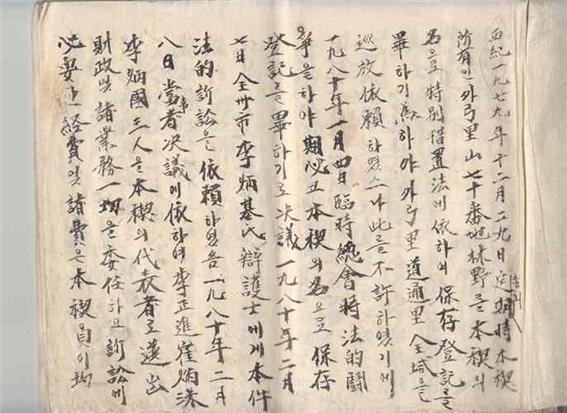 西紀一九七九年十二月二九日定期時本楔
所有인外弓里山七十番地林野를本楔의
名으로特別措置法에依하여保存登記를
畢하기爲하야外弓里道通里全域을
巡放依賴하였으나此를不許하였기에
一九八十年一月四日臨時總會時法的鬪
爭을하야期必코本楔의名으로保存
登記를畢하기로决議一九八十年二月
七日全州市李炳基氏辯護士에게本件
法的訴訟을依賴하였음一九八十年二月
八日當事者决議에依하여李正進崔炳洙
李炳國三人을本楔의代表者로選出
財政및諸業務一切을委任하고訴訟에
必要한經費및諸費은本楔員이均